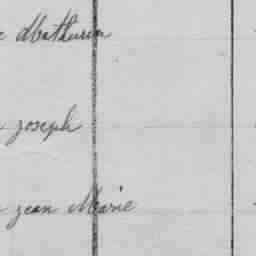 Mathurin
joseph
jean Marie